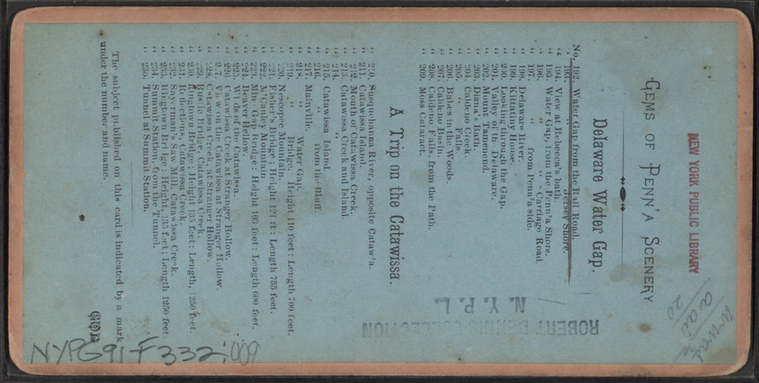 GEMS OF PENN'A SCENERY
NEW YORK PUBLIC LIBRARY
Delaware Water Gap.
No. 192. Water Gap from the Rail Road.
" 193. " " " Jersey Shore.
" 194. View at Rebecca's bath.
" 195. Water Gap, from the Penn'a Shore.
" 196. " " " " Carriage Road.
" 197. " " from Penn'a side.
" 198. Delaware River.
" 199. Kittatiny House.
" 200. Looking through the Gap.
" 201. Valley of the Delaware.
" 202. Mount Tamenend.
" 203. Diana's Bath.
" 204. Caldeno Creek
" 205. " Falls.
" 206. Bakers in the Woods.
" 207. Caldeno Basin.
" 208. Caldeno Falls, from the Path.
" 209. Moss Cataract.
A Trip on the Catawissa.
" 210. Susquehanna River, opposite Cataw'a.
" 211. Catawissa Island.
" 212. Mouth of Catawissa Creek.
" 213. Catawissa Creek and Island.
" 214. " "
" 215. Catawissa Island.
" 216. " from the Bluff.
" 217. Mainville.
" 218. " Water Gap.
" 219. " Bridge: Height 110 feet: Length 700 feet.
" 220. Nescopec Mountain.
" 221. Fisher's Bridge; Height 124 ft: Length 755 feet.
" 222. M'Cauley Mountain.
" 223. Bridge: Height 105 feet: Length 600 feet.
" 224. Beaver Hollow.
" 225. Wilds of the Catawissa.
" 226. Catawissa Creek at Stranger Hollow.
" 227. View on the Catawissa at Stranger Hollow.
" 228. Catawissa Creek, at Stranger Hollow.
" 229. Rustic Bridge, Catawissa Creek.
" 230. Ringtown Bridge; Height 135 feet: Length, 1250 feet.
" 231. Reflections, Catawissa Creek.
" 232. Saw Mill, Catawissa Creek.
" 233. Ringtown Bridge; Height 135 feet; Length 1250 feet.
" 234. Summit Station, from the Tunnel.
" 235. Tunnel at Summit Station.
The subject published on this card is indicated by a mark
under the number and name.
ROBERT DENNIS COLLECTION
N. Y. P. L.
NYPG91-F332.009